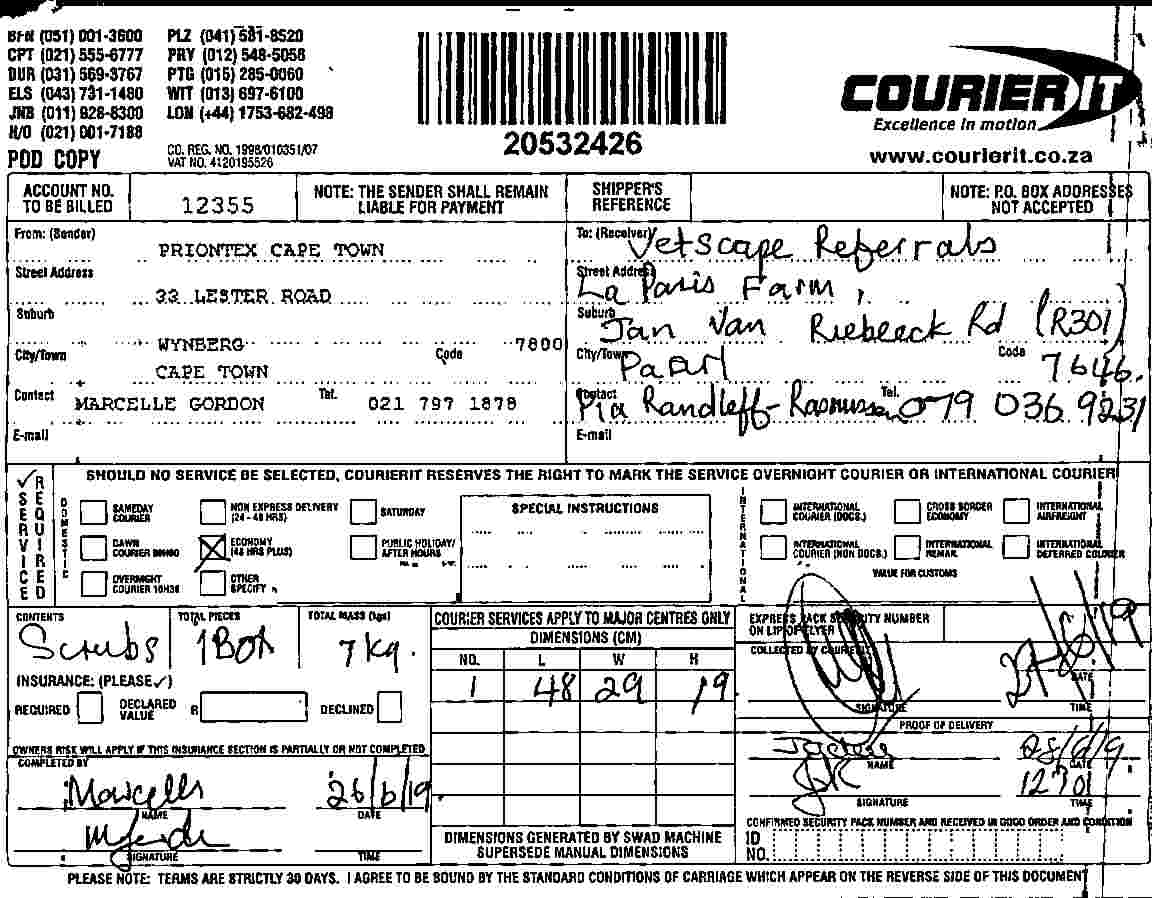 BFN (051) 001-3600 PLZ (041) 581-8520
CPT (021) 555-6777 PRY (012) 548-5058
DUR (031) 569-3767 PTG (015) 285-0060
ELS (043) 731-1480 WIT (013) 697-6100
JNB (011) 928-8300 LON (+44) 1753-682-498
H/O (021) 001-7188
POD COPY
CO. REG. NO. 1998/010351/07
VAT NO. 4120195526
20532426
COURIER IT
Excellence in motion
www.courierit.co.za
ACCOUNT NO. TO BE BILLED 12355
NOTE: THE SENDER SHALL REMAIN LIABLE FOR PAYMENT
SHIPPER'S REFERENCE
NOTE: P.O. BOX ADDRESSES NOT ACCEPTED
From: (Sender) PRIONTEX CAPE TOWN
Street Address 33 LESTER ROAD
Suburb WYNBERG
City/Town CAPE TOWN Code 7800
Contact MARCELLE GORDON Tel. 021 797 1878
E-mail
To: (Receiver) Vetscape Referrals
Street Address La Paris Farm,
Suburb Jan Van Riebeeck Rd (R301)
City/Town Paarl Code 7646.
Contact Pia Randleff-Rasmussen Tel. 079 036 9231
E-mail
✓SERVICE REQUIRED
SHOULD NO SERVICE BE SELECTED, COURIERIT RESERVES THE RIGHT TO MARK THE SERVICE OVERNIGHT COURIER OR INTERNATIONAL COURIER
DOMESTIC
SAMEDAY COURIER
NON EXPRESS DELIVERY (24 - 48 HRS)
SATURDAY
DAWN COURIER
ECONOMY (48 HRS PLUS)
PUBLIC HOLIDAY/ AFTER HOURS
OVERNIGHT COURIER 10H30
OTHER SPECIFY
SPECIAL INSTRUCTIONS
INTERNATIONAL
INTERNATIONAL COURIER (DOCS.)
CROSS BORDER ECONOMY
INTERNATIONAL AIRFREIGHT
INTERNATIONAL COURIER (NON DOCS.)
INTERNATIONAL REMAIL
INTERNATIONAL DEFERRED COURIER
VALUE FOR CUSTOMS
CONTENTS Scrubs
TOTAL PIECES 1 BOX
TOTAL MASS (kgs) 7 kg.
INSURANCE: (PLEASE ✓)
REQUIRED DECLARED VALUE R DECLINED
OWNERS RISK WILL APPLY IF THIS INSURANCE SECTION IS PARTIALLY OR NOT COMPLETED
COMPLETED BY
NAME
26/6/19
DATE
SIGNATURE TIME
COURIER SERVICES APPLY TO MAJOR CENTRES ONLY
DIMENSIONS (CM)
NO. L W H
1 48 29 19
DIMENSIONS GENERATED BY SWAD MACHINE SUPERSEDE MANUAL DIMENSIONS
EXPRESS PACK SECURITY NUMBER ON LIP OF FLYER
COLLECTED BY COURIERIT
SIGNATURE
DATE
TIME
PROOF OF DELIVERY
NAME
DATE
SIGNATURE
TIME
CONFIRMED SECURITY PACK NUMBER AND RECEIVED IN GOOD ORDER AND CONDITION
ID NO.
PLEASE NOTE: TERMS ARE STRICTLY 30 DAYS. I AGREE TO BE BOUND BY THE STANDARD CONDITIONS OF CARRIAGE WHICH APPEAR ON THE REVERSE SIDE OF THIS DOCUMENT